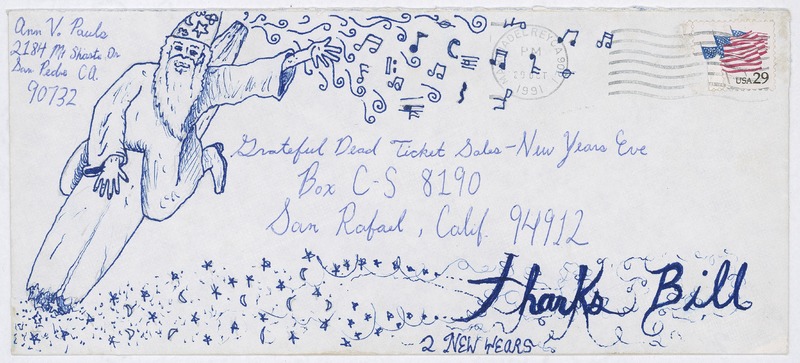 Ann V. Pauls
2184 Mt Shasta Dr
San Pedro CA.
90732
PM
1991
USA 29
Grateful Dead Ticket Sales - New Years Eve
Box C-S 8190
San Rafael, Calif. 94912
Thanks Bill
2 NEW YEARS